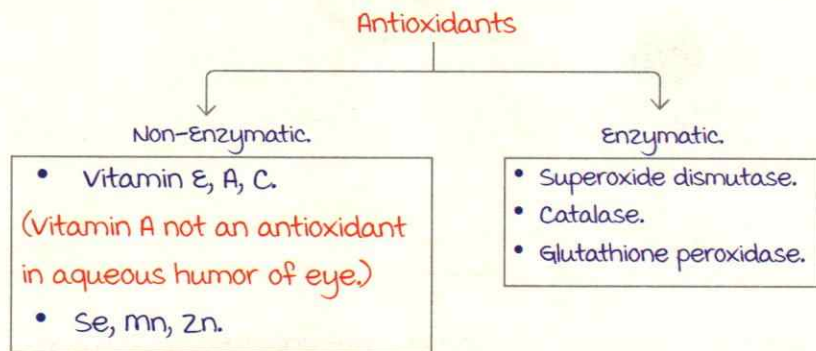 Antioxidants
Non-Enzymatic.
• Vitamin E, A, C.
(Vitamin A not an antioxidant
in aqueous humor of eye.)
• Se, mn, Zn.
Enzymatic.
• Superoxide dismutase.
• Catalase.
• Glutathione peroxidase.